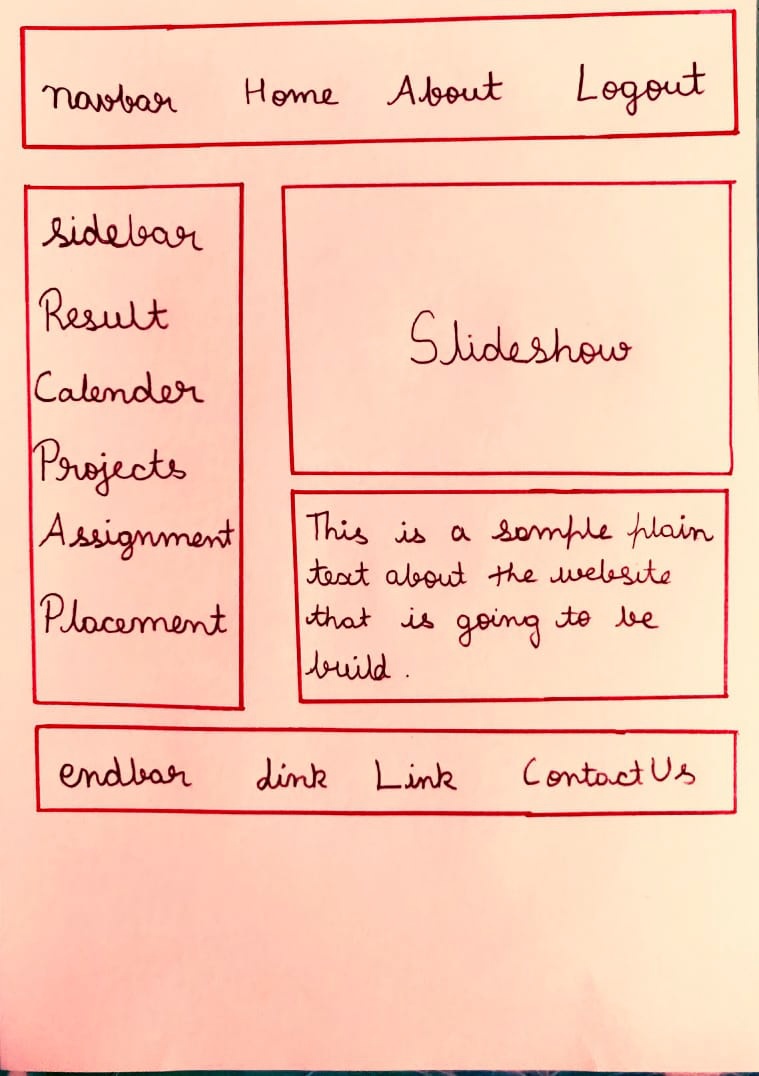 navbar Home About Logout
sidebar
Result
Calender
Projects
Assignment
Placement
Slideshow
This is a sample plain
text about the website
that is going to be
build.
endbar Link Link Contact Us